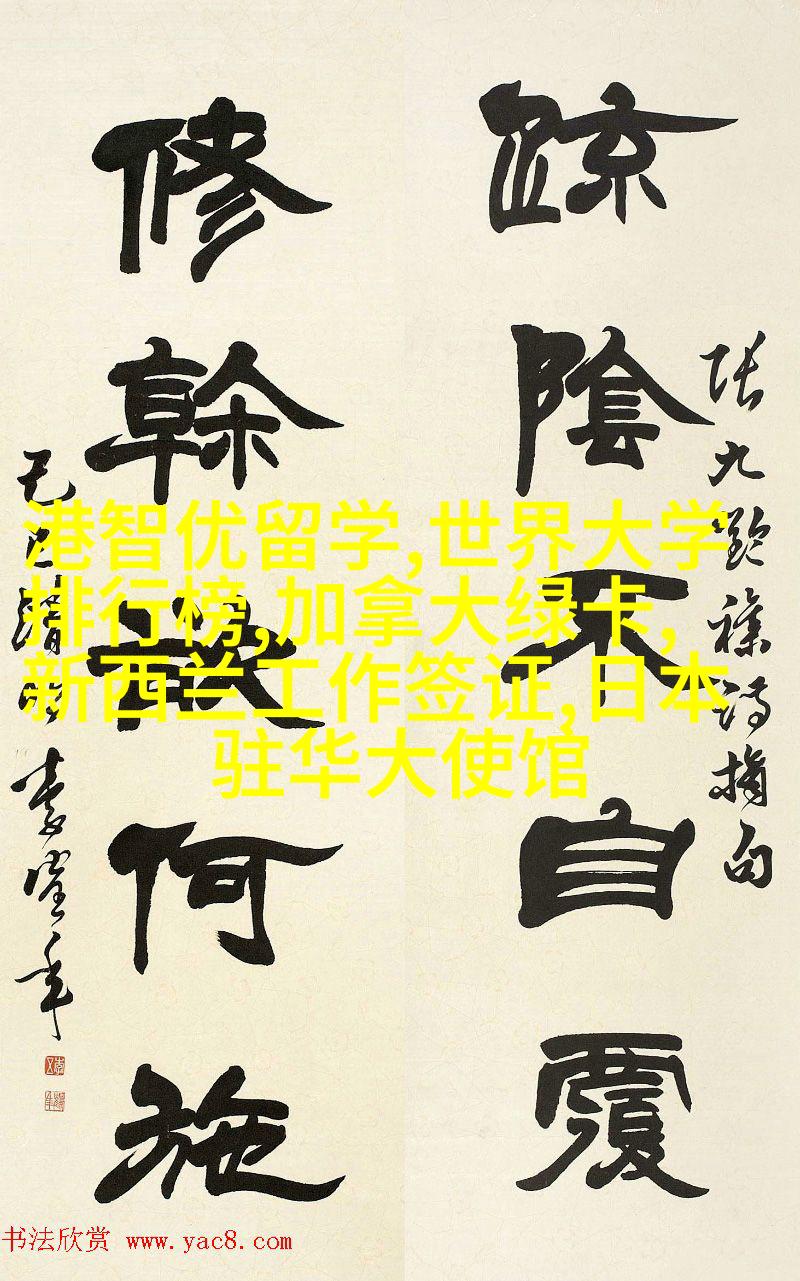 疏陰不自覆
修幹欲何施
張九齡襍詩摘句
港智优留学,世界大学
排行榜,加拿大绿卡,
新西兰工作签证,日本
驻华大使馆
书法欣赏 www.yac8.com